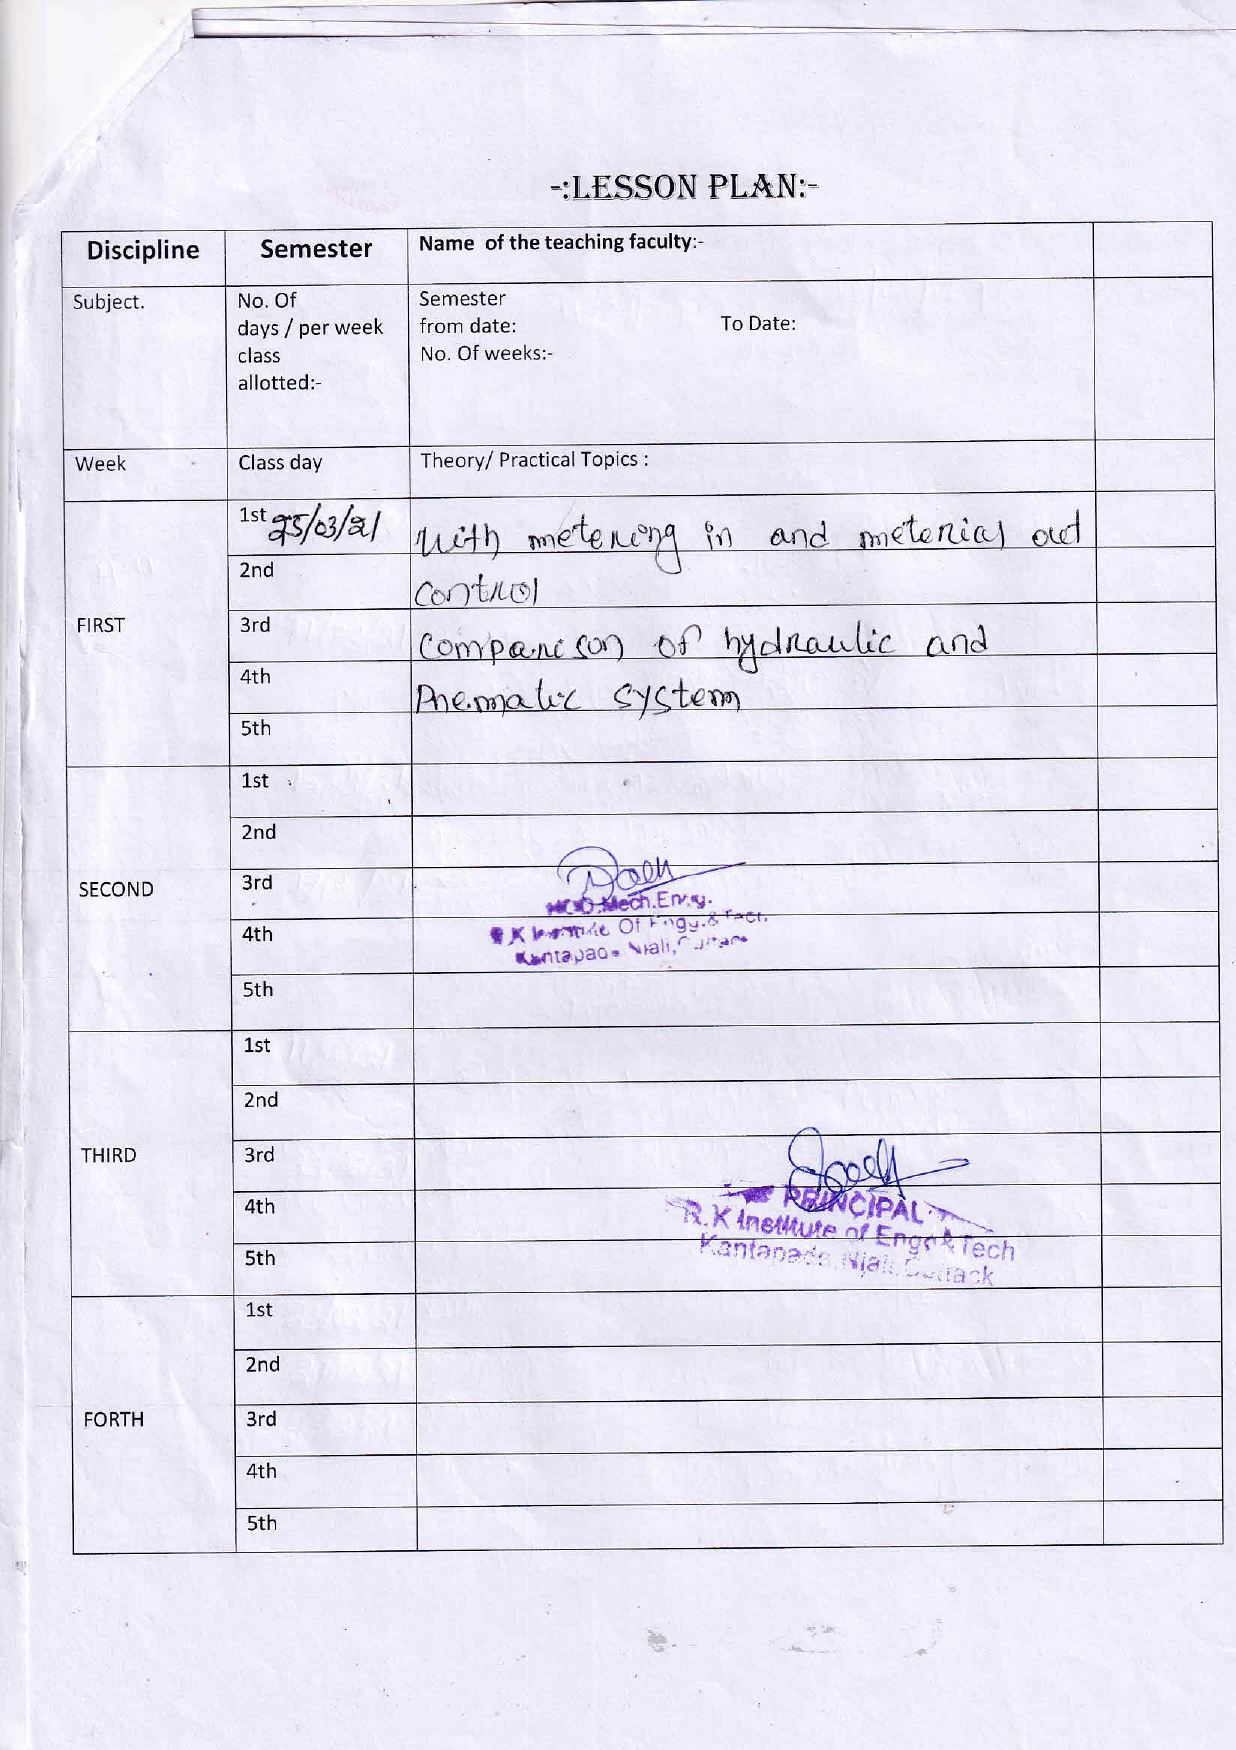 -:LESSON PLAN:-
Discipline Semester Name of the teaching faculty:-
Subject. No. Of days / per week class allotted:- Semester from date: To Date: No. Of weeks:-
Week Class day Theory/ Practical Topics :
FIRST
1st 25/03/21 With metering in and meterial out
2nd control
3rd Comparison of hydraulic and
4th Phematic system
5th
SECOND
1st
2nd
3rd
HOD.Mech.Engg.
4th
Of Engg.& Tech.
5th
THIRD
1st
2nd
3rd
4th
PRINCIPAL
R.K Institute of Engg & Tech
5th
Kantapada, Niali, Cuttack
FORTH
1st
2nd
3rd
4th
5th